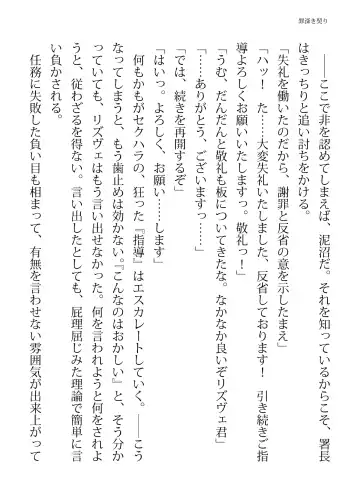 罪深き契り
――ここで非を認めてしまえば、泥沼だ。それを知っているからこそ、署長
はきっちりと追い討ちをかける。
「失礼を働いたのだから、謝罪と反省の意を示したまえ」
「ハッ！　た……大変失礼いたしました、反省しております！　引き続きご指
導よろしくお願いいたしますっ。敬礼っ！」
「うむ、だんだんと敬礼も板についてきたな。なかなか良いぞリズヴェ君」
「……ありがとう、ございますっ……」
「では、続きを再開するぞ」
「はいっ。よろしく、お願い……します」
何もかもがセクハラの、狂った『指導』はエスカレートしていく。――こう
なってしまうと、もう歯止めは効かない。『こんなのはおかしい』と、そう分か
っていても、リズヴェはもう言い出せなかった。何を言われようと何をされよ
うと、従わざるを得ない。言い出したとしても、屁理屈じみた理論で簡単に言
い負かされる。
任務に失敗した負い目も相まって、有無を言わせない雰囲気が出来上がって